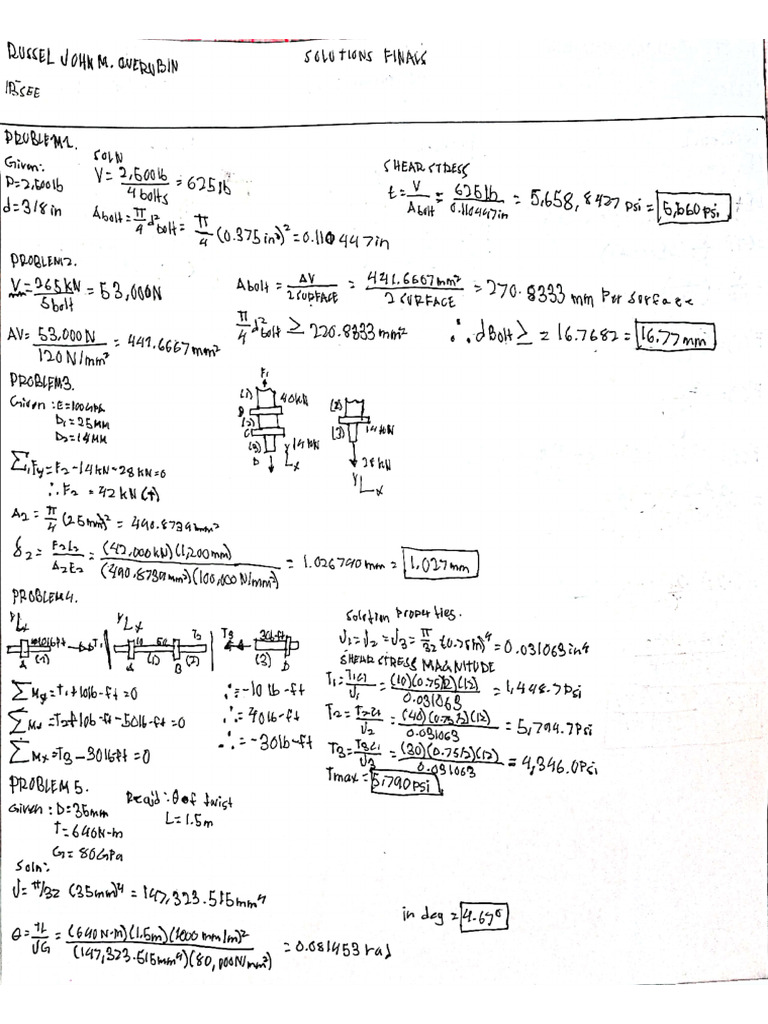 RUSSEL JOHN M. QUERUBIN
SOLUTIONS FINALS
BSEE
PROBLEM1.
Given:
P=2,500lb
d=3/8in
SOLN
V= 2,500lb / 4 bolts = 625lb
Abolt= π/4 d²bolt= π/4 (0.375in²)²=0.110447in
SHEAR STRESS
t= V/Abolt = 625lb/0.110447in = 5,658,8427 psi= 5,660psi
PROBLEM2.
V= 265kN/5bolt = 53,000N
AV= 53,000N/120N/mm² = 441.6667mm²
Abolt= AV/2SURFACE = 441.6667mm²/2 SURFACE = 270.8333 mm Per surface
π/4 d²bolt ≥ 220.8333mm²
∴ dBolt ≥ = 16.7682 = 16.77mm
PROBLEM3.
Given: E=100GPa
D1=25MM
D2=14MM
F1
(1) 40kN
B
(2)
C
(3) 14kN
D
Y
X
(2)
(3) 14kN
28kN
Y
X
∑Fy=F2-14kN-28kN=0
∴F2 = 42kN(↑)
A2= π/4 (25mm)²=490.8739mm²
δ2= F2L2/A2E2 = (42,000kN)(1,200mm)/(490.8739mm²)(100,000N/mm²) = 1.026740mm= 1.027mm
PROBLEM4.
Y X
A (1) T1
Y X
10 50 T2
A (1) B (2)
T3 30lb-ft
(3) D
∑Mx=T1+10lb-ft=0 ∴=-10lb-ft
∑Mx=T2+10lb-ft-50lb-ft=0 ∴=40lb-ft
∑Mx=T3-30lbft=0 ∴=-30lb-ft
Solution Properties.
J1=J2=J3= π/32 (0.75in)⁴=0.031063in⁴
SHEAR STRESS MAGNITUDE
T1= T1C1/J1 = (10)(0.75/2)(12)/0.031063 = 1,448.7psi
T2= T2C2/J2 = (40)(0.75/2)(12)/0.031063 = 5,794.7Psi
T3= T3C3/J3 = (30)(0.75/2)(12)/0.031063 = 4,346.0Psi
Tmax= 5,790psi
PROBLEM 5.
Given: D=35mm
T=640N-m
G=80GPa
Reqid: θ of twist
L=1.5m
Soln:
J=π/32 (35mm)⁴=147,323.515mm⁴
θ= TL/JG = (640N-m)(1.5m)(1000mm/m)²/(147,323.515mm⁴)(80,000N/mm²) =0.081453rad
in deg = 4.67°